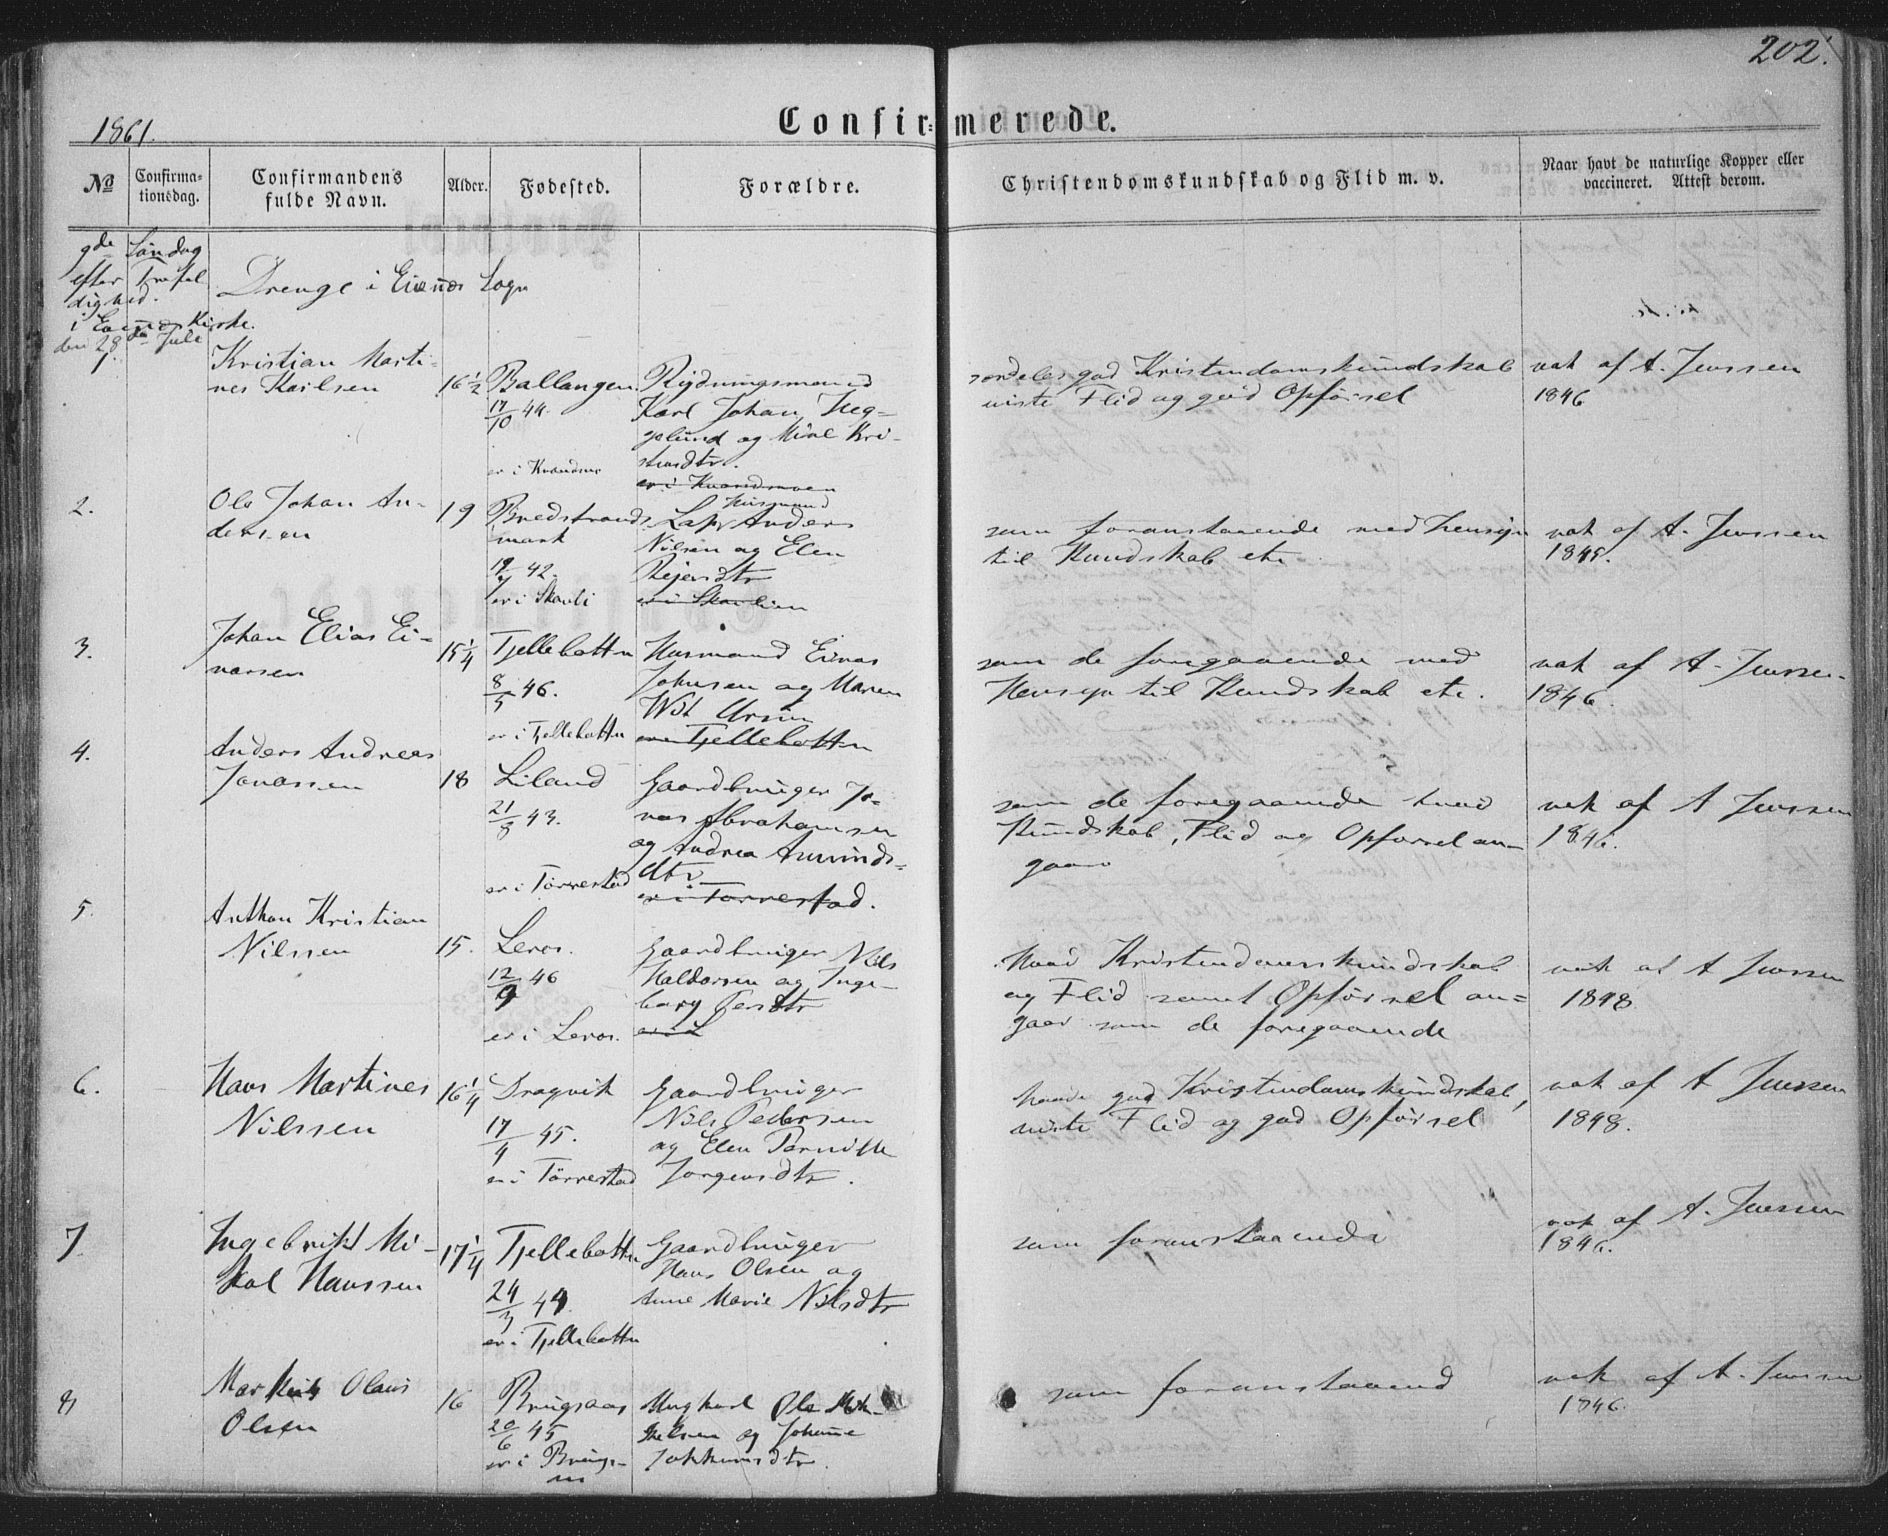 202.
1861.
Confir-merede.
No
Confirma-
tionsdag.
Confirmandens
fulde Navn.
Alder.
Fødested.
Forældre.
Christendomskundskab og Flid m. v.
Naar havt de naturlige Kopper eller
vaccineret. Attest derom.
9de Søndag
efter Trefol
dighed.
i Evenæs Kirke.
den 28 de Juli
Drenge i Evenæs Sogn
1.
Kristian Marti-
nes Karlsen
16 1/2
Ballangen
17/10 44.
er i Kvandmo
Rydningsmand
Karl Johan Heg-
gelund og Mine Kri-
stensdtr.
er i Kvandmoen
særdeles god Kristendomskundskab
viste Flid og god Opførsel
vak af A. Jenssen
1846
2.
Ole Johan An-
dersen
19
Bredstrands
mark
42.
er i Skavli
Husmand
Lap Anders
Nilsen og Elen
er i Skavlien
som foranstaaende med Hensyn
til Kundskab etc.
vak af A. Jenssen
1845.
3.
Johan Elias Ei-
narsen
15 1/4
Tjellebotten
8/5 46.
er i Tjellebotten
Husmand Einar
Johnsen og Maren
er i Tjellebotten
som de foregaaende med
Hensyn til Kundskab etc.
vak af A. Jenssen
1846
4.
Anders Andreas
Jonassen
18
Liland
21/8 43.
er i Tørrestad
Gaardbruger Jo-
nas Abrahamsen
og Andrea Amunds-
dtr
er i Tørrestad.
som de foregaaende hvad
Kundskab, Flid og Opførsel an-
gaar
vak af A Jenssen
1846.
5.
Anthon Kristian
Nilssen
15.
Leros.
12/9 46
er i Leros.
Gaardbruger Nils
Haldorsen og Inge-
borg
er i L
Hvad Kristendomskundskab
og Flid samt Opførsel an-
gaar som de foregaaende
vak af A Jenssen
1848
6.
Hans Martines
Nilssen
16 1/4
Dragvik
17/4 45.
er i Tørrestad
Gaardbruger
Nils Pedersen
og Elen Pernille
Jørgensdtr.
havde god Kristendomskundskab,
viste Flid og god Opførsel
vak af A Jenssen
1848.
7.
Ingebrikt Mi-
kal Hanssen
17 1/4
Tjellebotten
24/3 44.
er i Tjellebotten
Gaardbruger
Hans Olsen og
Anne Marie Nilsdtr
som foranstaaende
vak af A. Jenssen
1846.
8
Olaus
Olsen
16
20/6 45
er i
Ole
og Johanne
som foranstaaend
vak af A. Jenssen
1846.